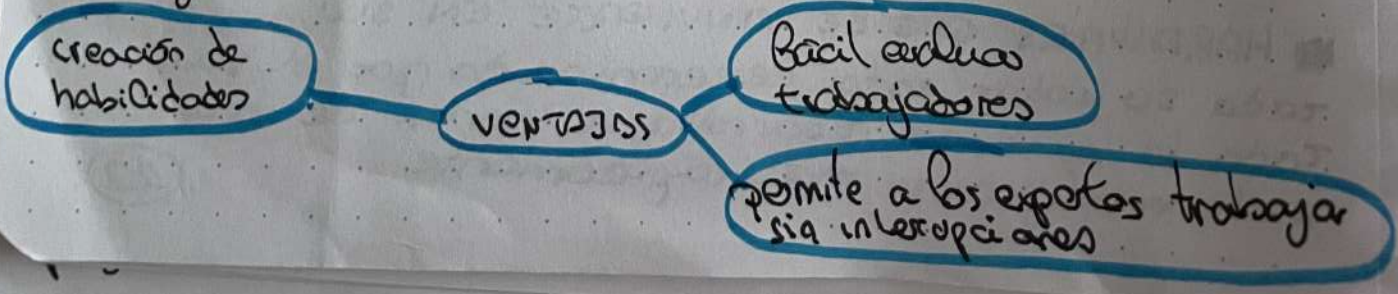 creación de
habilidades
VENTAJAS
fácil evaluar
trabajadores
permite a los expertos trabajar
sin interrupciones